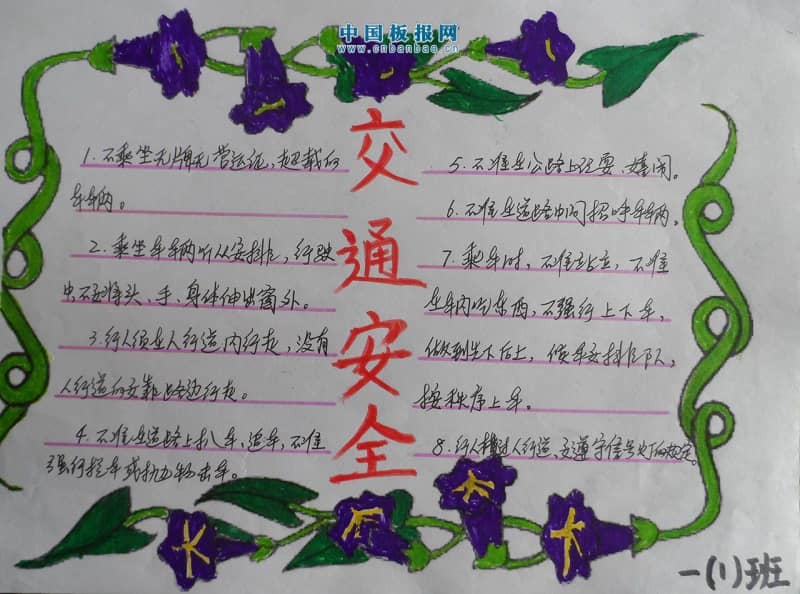 中国板报网
www.cnbanbao.cn
交通安全
1. 不乘坐无牌无营运证,超载的
车辆。
2. 乘坐车辆听从安排,行驶
中不要将头、手、身体伸出窗外。
3. 行人须在人行道内行走,没有
人行道的要靠路边行走。
4. 不准在道路上扒车,追车,不准
强行拦车或抛物击车。
5. 不准在公路上玩耍、嬉闹。
6. 不准在道路中间招呼车辆。
7. 乘车时,不准站立,不准
在车内吃东西,不强行上下车,
做到先下后上,候车要排队,
按秩序上车。
8. 行人横过人行道、要遵守信号灯的规定。
一(1)班